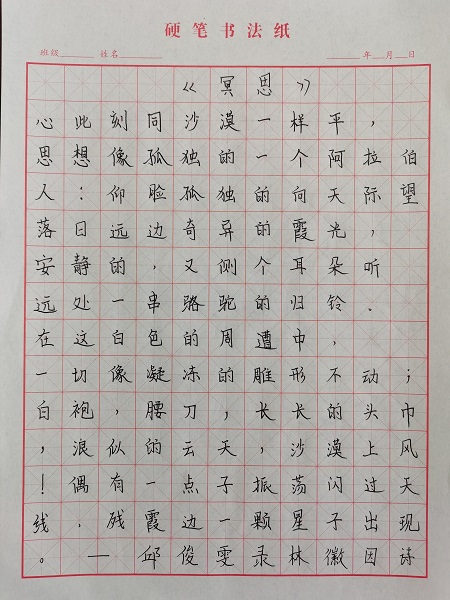 硬笔书法纸
班级 姓名 年 月 日
《冥思》
心此刻同沙漠一样平，
思想像孤独的一个阿拉伯
人：仰脸孤独的向天际望
落日远边奇异的霞光，
安静的，又侧个耳朵听
远处一串骆驼的归铃．
在这白色的周遭中，
一切像凝冻的雕形不动；
白袍，腰刀，长长的头巾
，浪似的云天，沙漠上风
！偶有一点子振荡闪过天
线，残霞边一颗星子出现
。—邱俊雯录林徽因诗